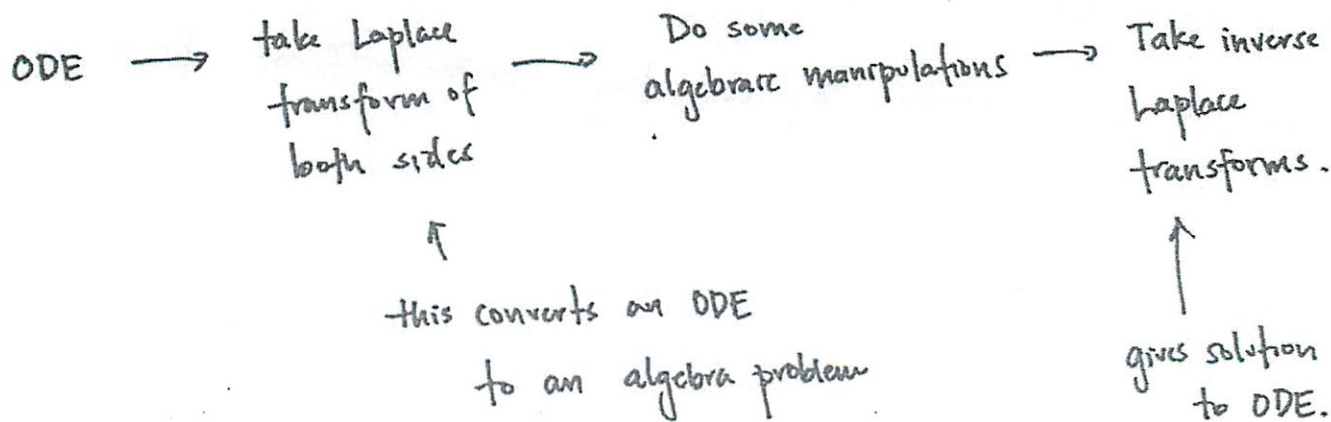 ODE → take Laplace transform of both sides → Do some algebraic manipulations → Take inverse Laplace transforms.
↑
this converts an ODE
to an algebra problem
↑
gives solution
to ODE.